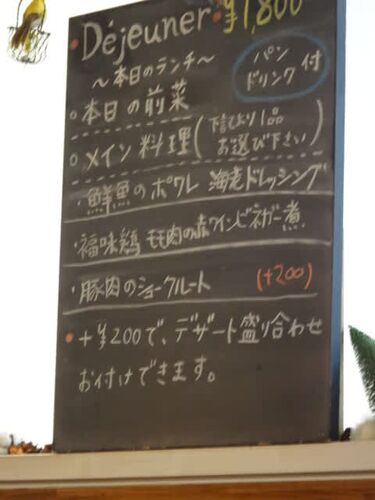 ・Déjeuner・¥1,800
〜本日のランチ〜
パン
ドリンク付
○本日の前菜
○メイン料理(下記より1品
お選び下さい)
・鮮魚のポワレ 海老ドレッシング
・福味鶏モモ肉の赤ワインビネガー煮
・豚肉のシュークルート (+200)
・+¥200で、デザート盛り合わせ
お付けできます。